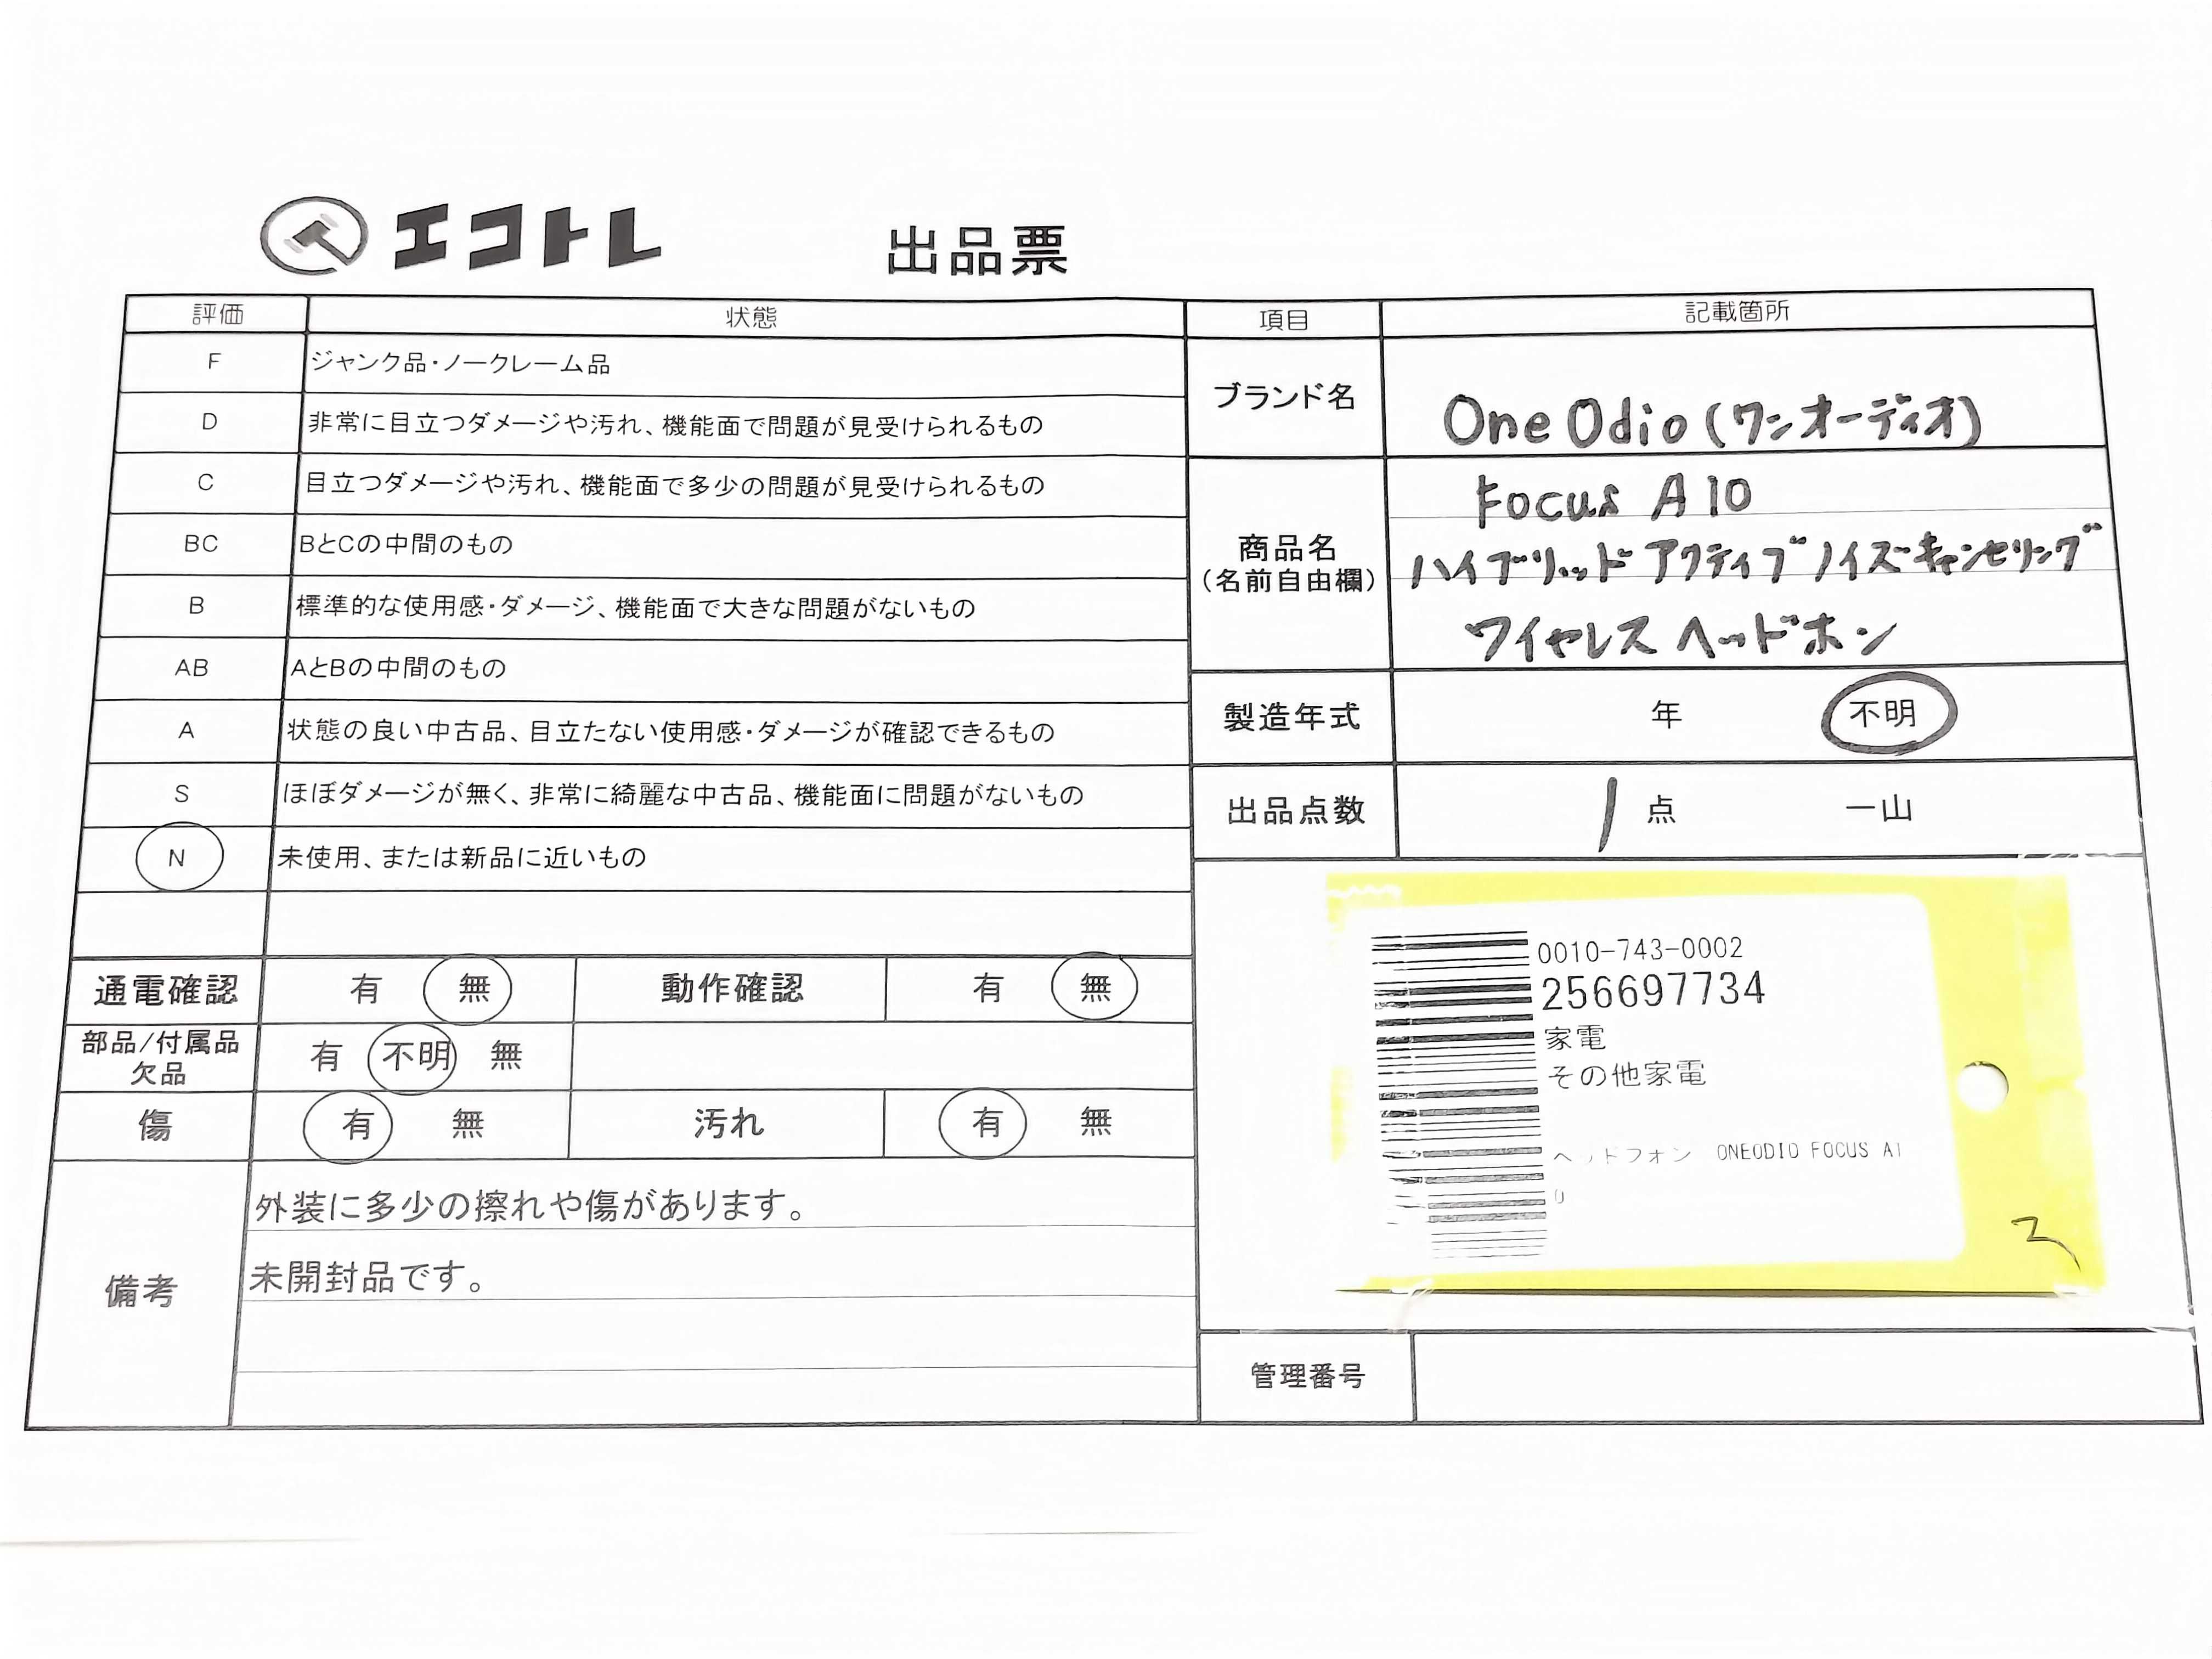 エコトレ
出品票
評価 状態
F ジャンク品・ノークレーム品
D 非常に目立つダメージや汚れ、機能面で問題が見受けられるもの
C 目立つダメージや汚れ、機能面で多少の問題が見受けられるもの
BC BとCの中間のもの
B 標準的な使用感・ダメージ、機能面で大きな問題がないもの
AB AとBの中間のもの
A 状態の良い中古品、目立たない使用感・ダメージが確認できるもの
S ほぼダメージが無く、非常に綺麗な中古品、機能面に問題がないもの
N 未使用、または新品に近いもの
通電確認 有 無 動作確認 有 無
部品/付属品
欠品 有 不明 無
傷 有 無 汚れ 有 無
備考
外装に多少の擦れや傷があります。
未開封品です。
項目 記載箇所
ブランド名 One Odio (ワンオーディオ)
商品名
(名前自由欄)
Focus A10
ハイブリッド アクティブ ノイズキャンセリング
ワイヤレス ヘッドホン
製造年式 年 不明
出品点数 1 点 一山
0010-743-0002
256697734
家電
その他家電
ヘッドフォン ONEODIO FOCUS A1
0
管理番号